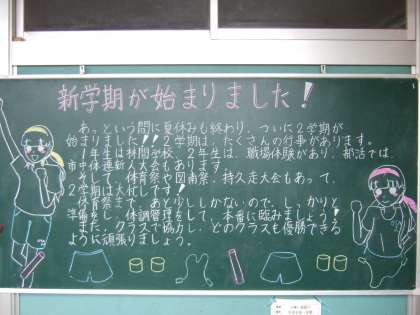 新学期が始まりました!
あっという間に夏休みも終わり、ついに2学期が
始まりました!!2学期は、たくさんの行事があります。
1年生は林間学校、2年生は、職場体験があり、部活では、
市中体連新人大会もあります。
そして、体育祭や図南祭、持久走大会もあって、
2学期は大忙しです!
体育祭まで、あと少ししかないので、しっかりと
準備をし、体調管理をして、本番に臨みましょう!
また、クラスで協力し、どのクラスも優勝できる
ように頑張りましょう。